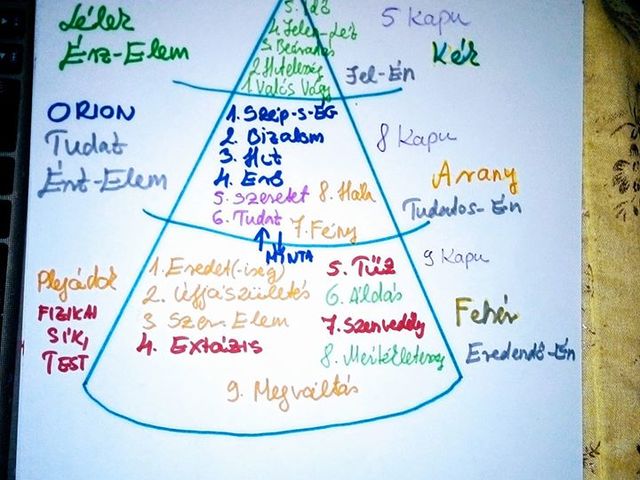 Lélek
Érz-Elem
5. Idő
4. Jelen-Lét
3. Beavatás
2. Hitelesség
1. Valós Vágy
5 Kapu
Kék
Jel-Én
ORION
Tudat
Érz-Elem
1. Szép-s-ÉG
2. Bizalom
3. Hit
4. Erő
5. Szeretet
6. Tudat
7. Fény
8. Hála
MINTA
8 Kapu
Arany
Tudatos-Én
Plejádok
FIZIKAI
SÍK,
TEST
1. Eredet(-iség)
2. Újjászületés
3 Szer. Elem
4. Extázis
5. Tűz
6. Áldás
7. Szenvedély
8.
9. Megváltás
9 Kapu
Fehér
Eredendő-Én